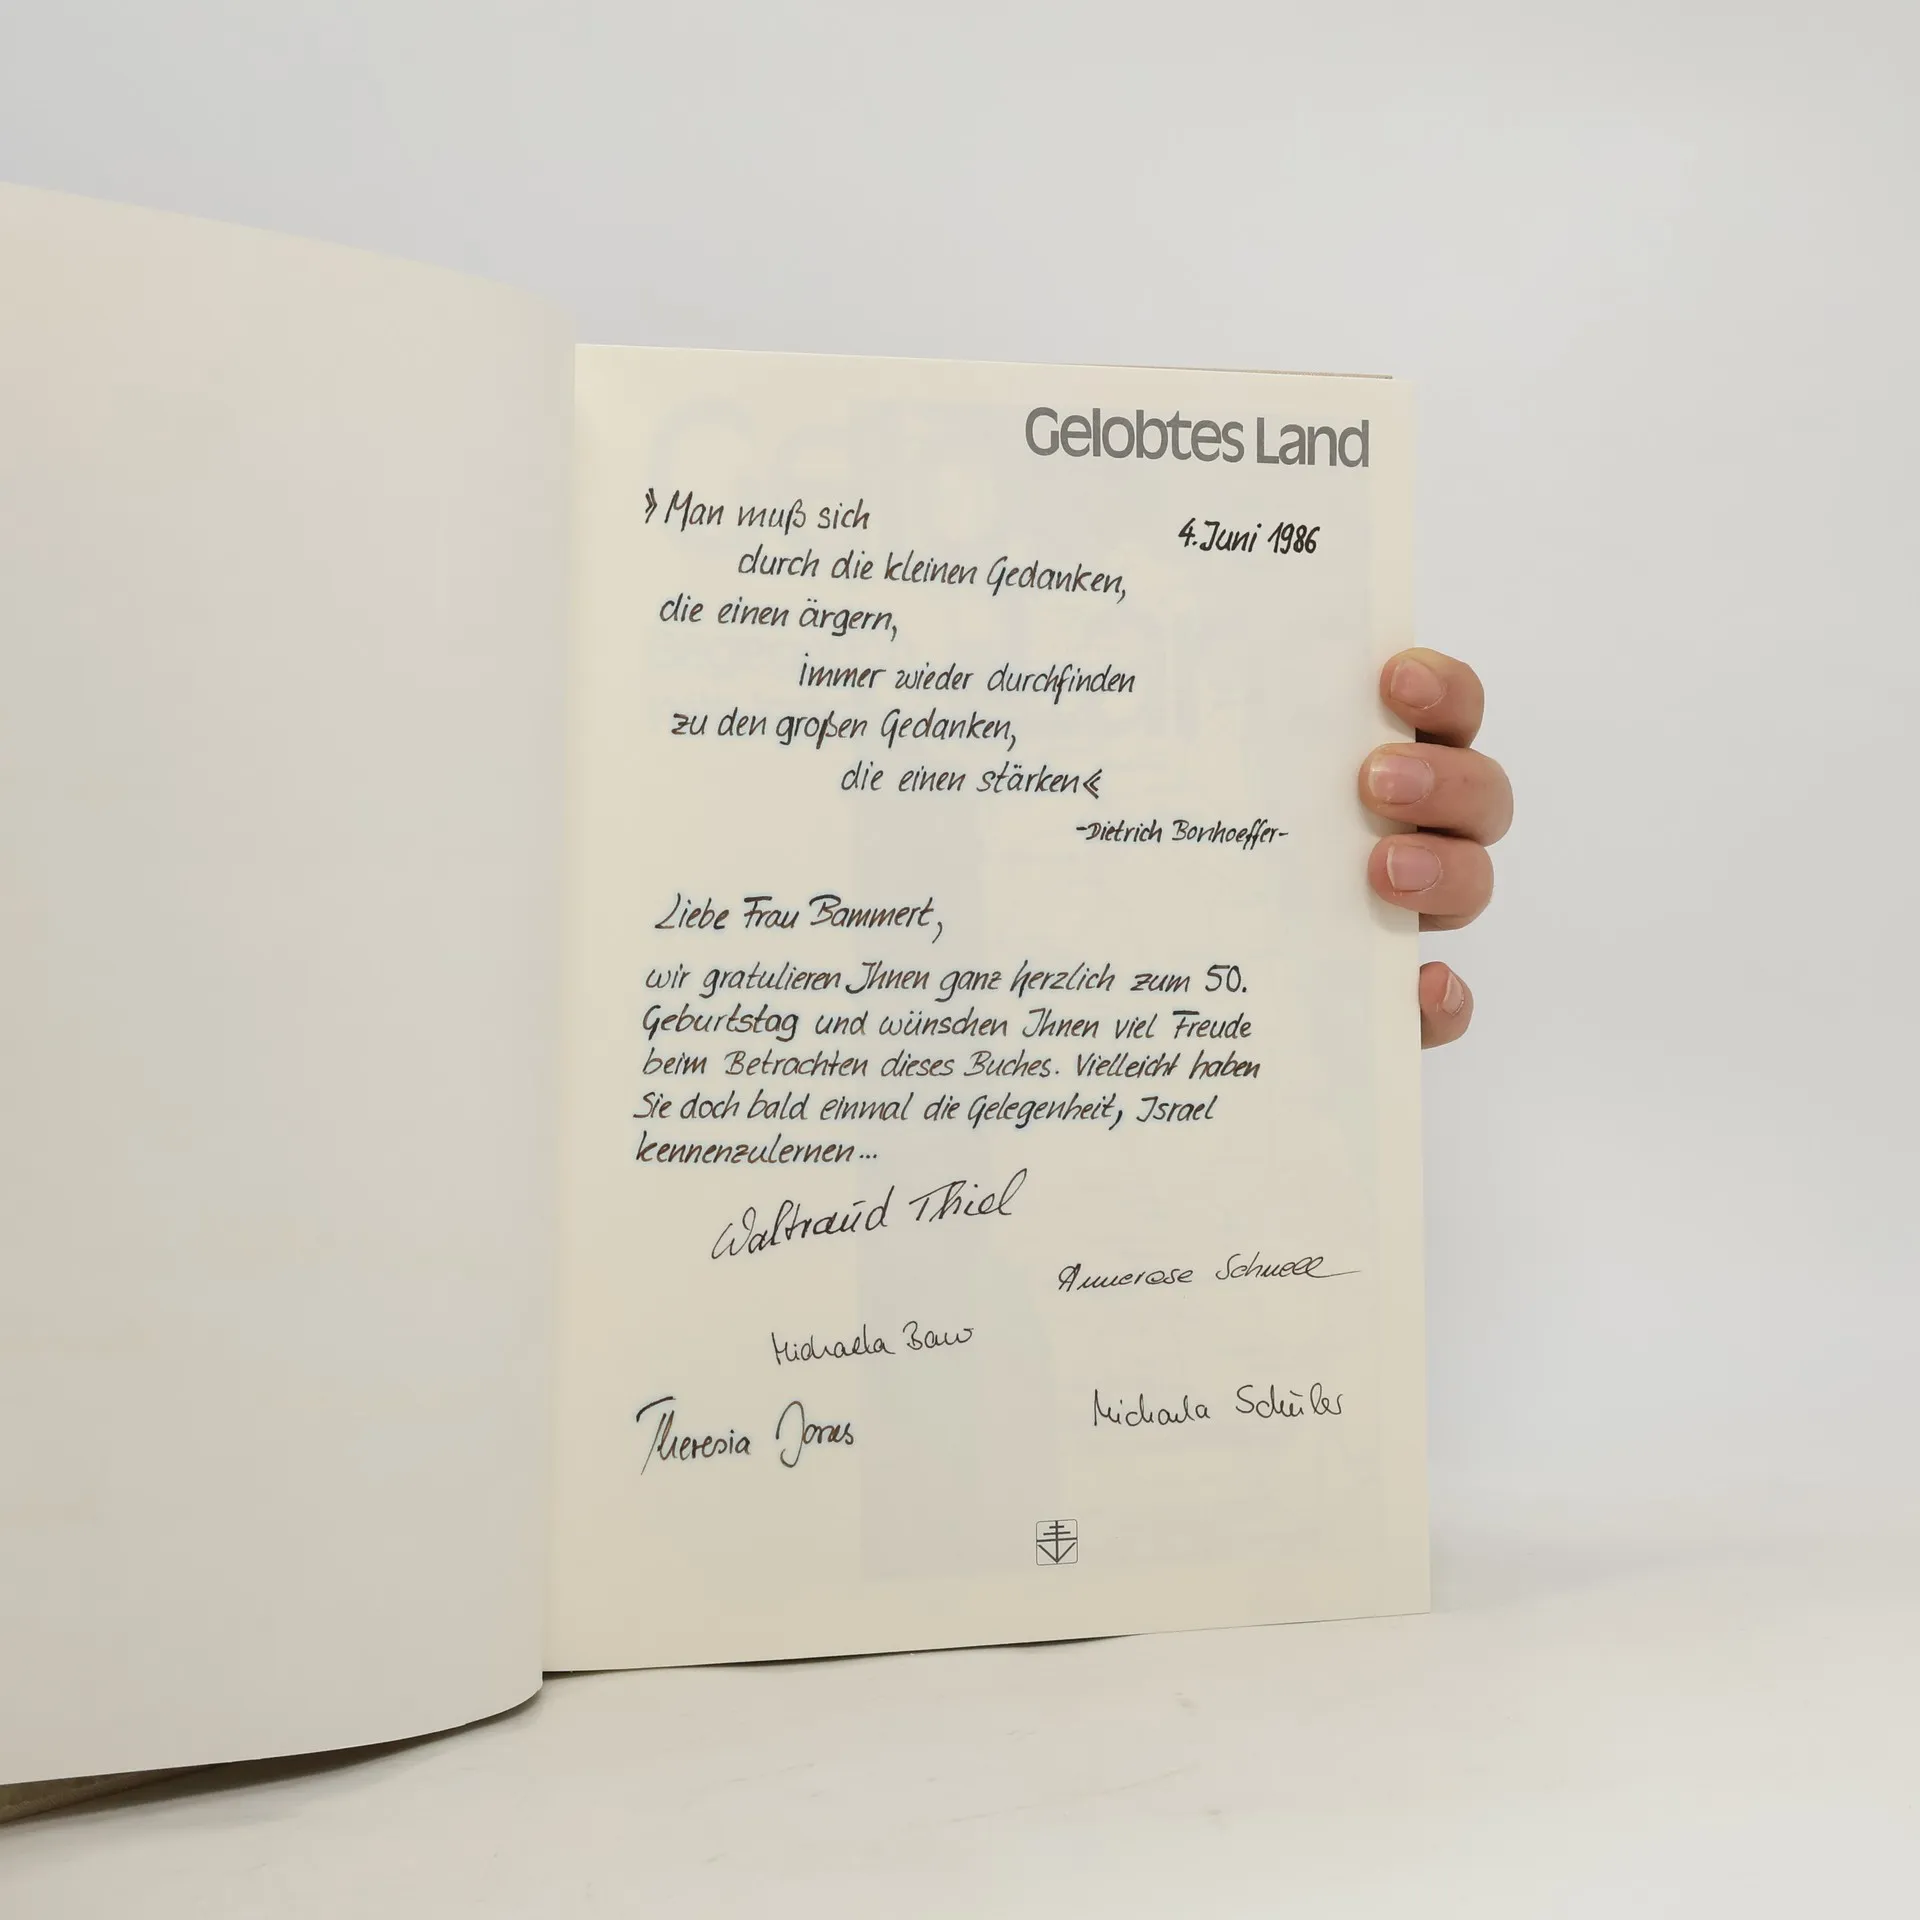 Gelobtes Land
»Man muß sich
4. Juni 1986
durch die kleinen Gedanken,
die einen ärgern,
immer wieder durchfinden
zu den großen Gedanken,
die einen stärken«
-Dietrich Bonhoeffer-
Liebe Frau Bammert,
wir gratulieren Ihnen ganz herzlich zum 50.
Geburtstag und wünschen Ihnen viel Freude
beim Betrachten dieses Buches. Vielleicht haben
Sie doch bald einmal die Gelegenheit, Israel
kennenzulernen...
Waltraud Thiel
Annerose Schnell
Michaela
Theresia
Michaela Schüler